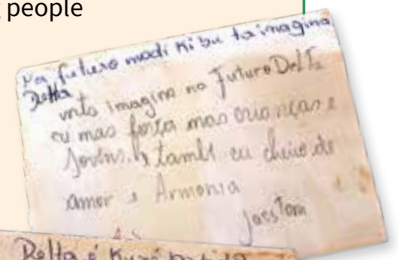 people
Na futuro modi ki bu ta imagina
Delta
imagino no Futuro Delta
cu mas força mas crianças e
Jovens. tambe cu cheio de
amor e Armonia
Delta é